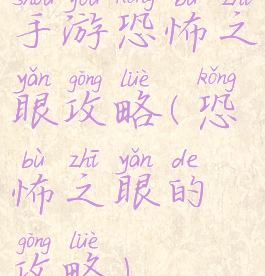 shǒu yóu kǒng bù zhī
手游恐怖之
yǎn gōng lüè kǒng
眼攻略(恐
bù zhī yǎn de
怖之眼的
gōng lüè
攻略)